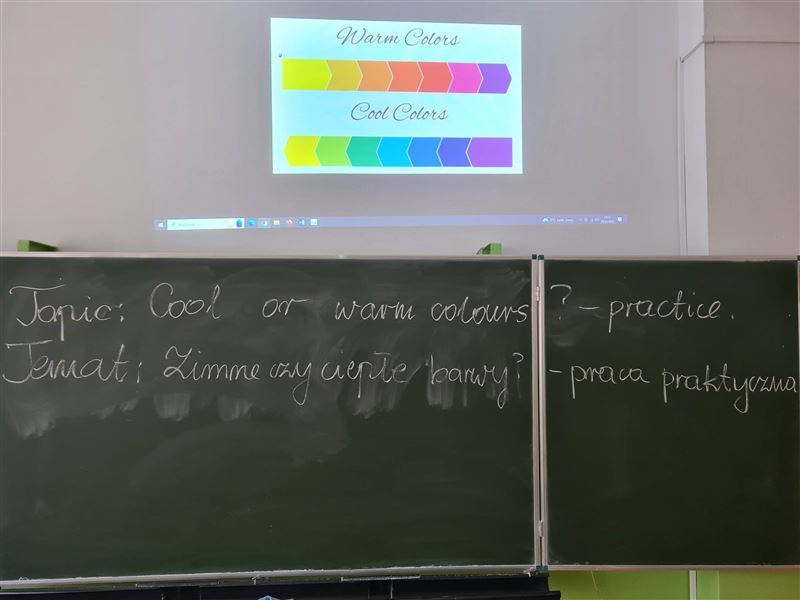 Warm Colors
Cool Colors
Topic: Cool or warm colours? - practice.
Temat: Zimne czy ciepłe barwy? - praca praktyczna